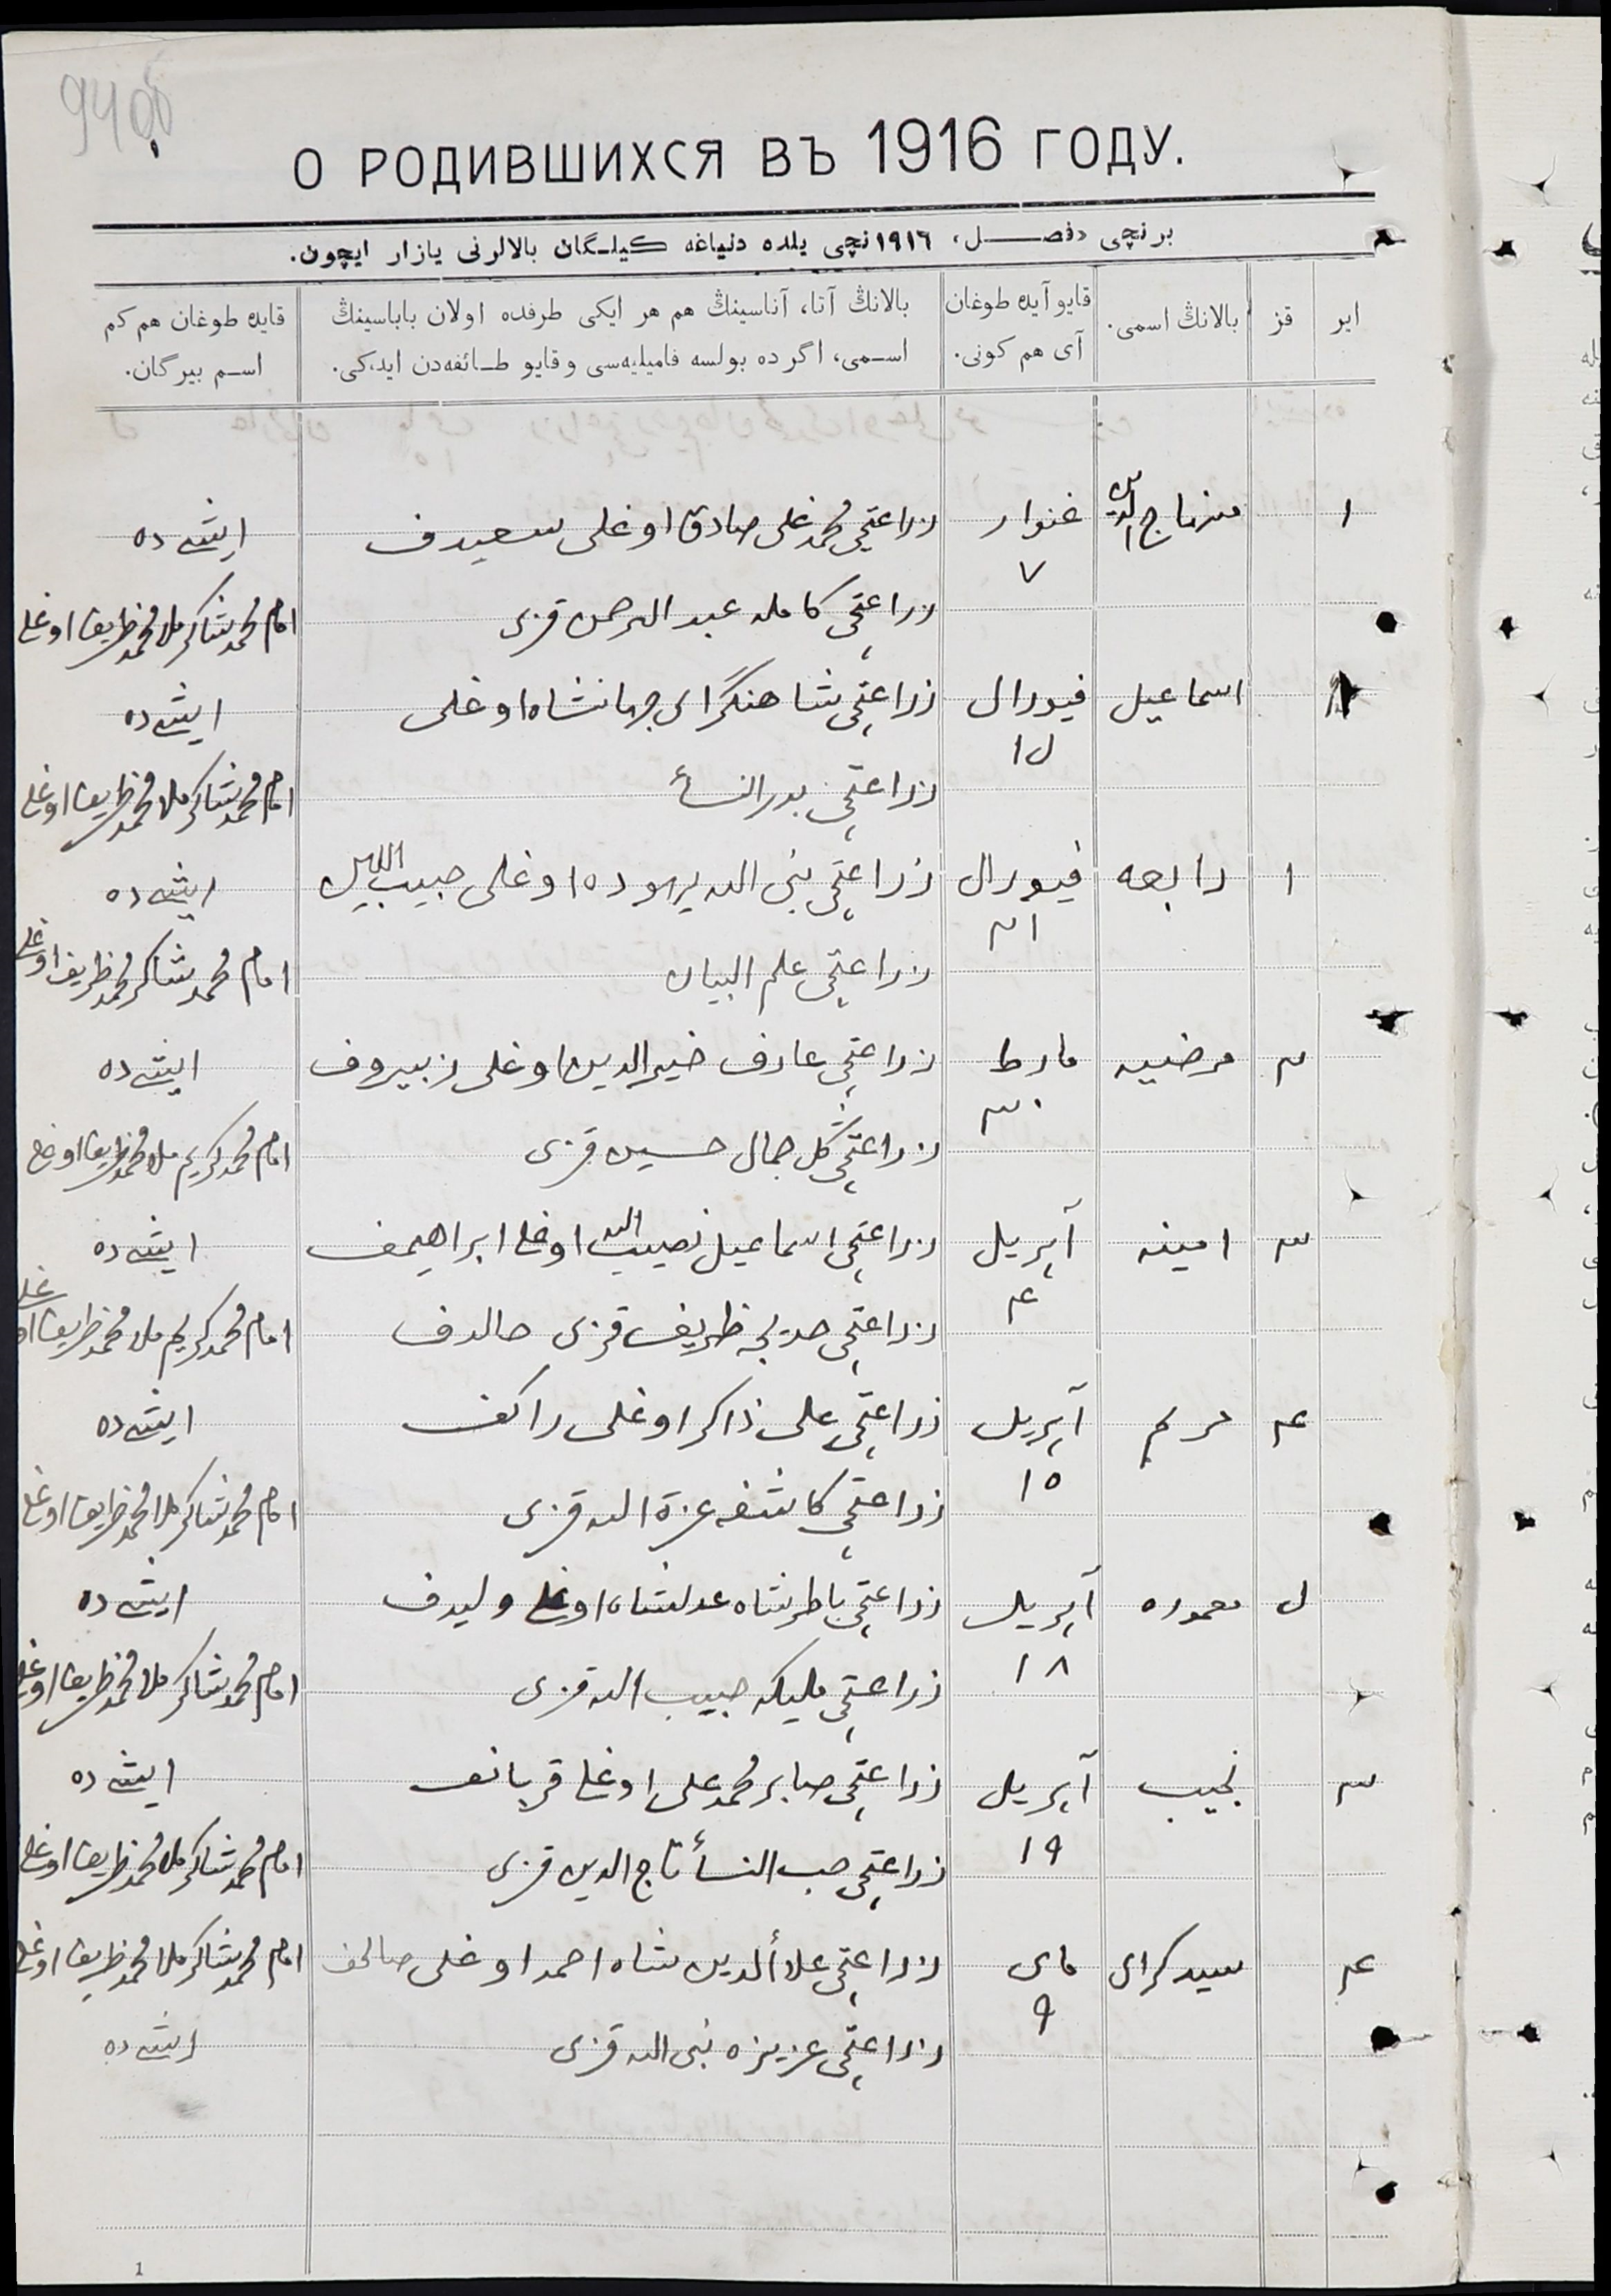 940
О РОДИВШИХСЯ ВЪ 1916 ГОДУ.
برنچی «فصل»، ١٩١٦نچی یلده دنیاغه کیلگان بالالرنی یازار ایچون.
ایر
قز
بالانڭ اسمی.
قایو آیده طوغان آی هم کونی.
بالانڭ آتا، آناسینڭ هم هر ایکی طرفده اولان باباسینڭ اسمی، اگر ده بولسه فامیلیه‌سی و قایو طائفه‌دن ایدکی.
قایده طوغان هم کم اسم بیرگان.
١ منهاج الدین غنوار زراعتچی محمدعلی صادق اوغلی سعیدف ایشده
٧ زراعتچی کامله عبد الرحمن قزی امام محمدشاکر ملا محمدظریف اوغلی
اسماعیل فیورال زراعتچی شاهنگرای جهانشاه اوغلی ایشده
زراعتچی بدر النسأ امام محمدشاکر ملا محمدظریف اوغلی
١ رابعه فیورال زراعتچی نبی الله یهوده اوغلی حبیب اللین ایشده
زراعتچی علم البیان امام محمدشاکر محمدظریف اوغلی
٢ مرضیه مارط زراعتچی عارف خیرالدین اوغلی زبیروف ایشده
٣٠ زراعتچی گل جمال حسین قزی امام محمدکریم ملا محمدظریف اوغلی
٣ امینه آپریل زراعتچی اسماعیل نصیب الله اوغلی ابراهیمف ایشده
٤ زراعتچی خدیجه ظریف قزی امام محمدکریم ملا محمدظریف اوغلی
٤ مریم آپریل زراعتچی علی ذاکر اوغلی راکف ایشده
١٥ زراعتچی کاشفه عزة الله قزی امام محمدشاکر ملا محمدظریف اوغلی
معموره آپریل زراعتچی باطرشاه عدلشاه اوغلی ولیدف ایشده
١٨ زراعتچی ملیکه حبیب الله قزی امام محمدشاکر ملا محمدظریف اوغلی
٣ نجیب آپریل زراعتچی صابر محمدعلی اوغلی قربانف ایشده
١٩ زراعتچی حب النسأ تاج الدین قزی امام محمدشاکر ملا محمدظریف اوغلی
٤ سیدکرای مای زراعتچی علاألدین شاه احمد اوغلی صالحف امام محمدشاکر ملا محمدظریف اوغلی
٩ زراعتچی عزیزه نبی الله قزی ایشده
1